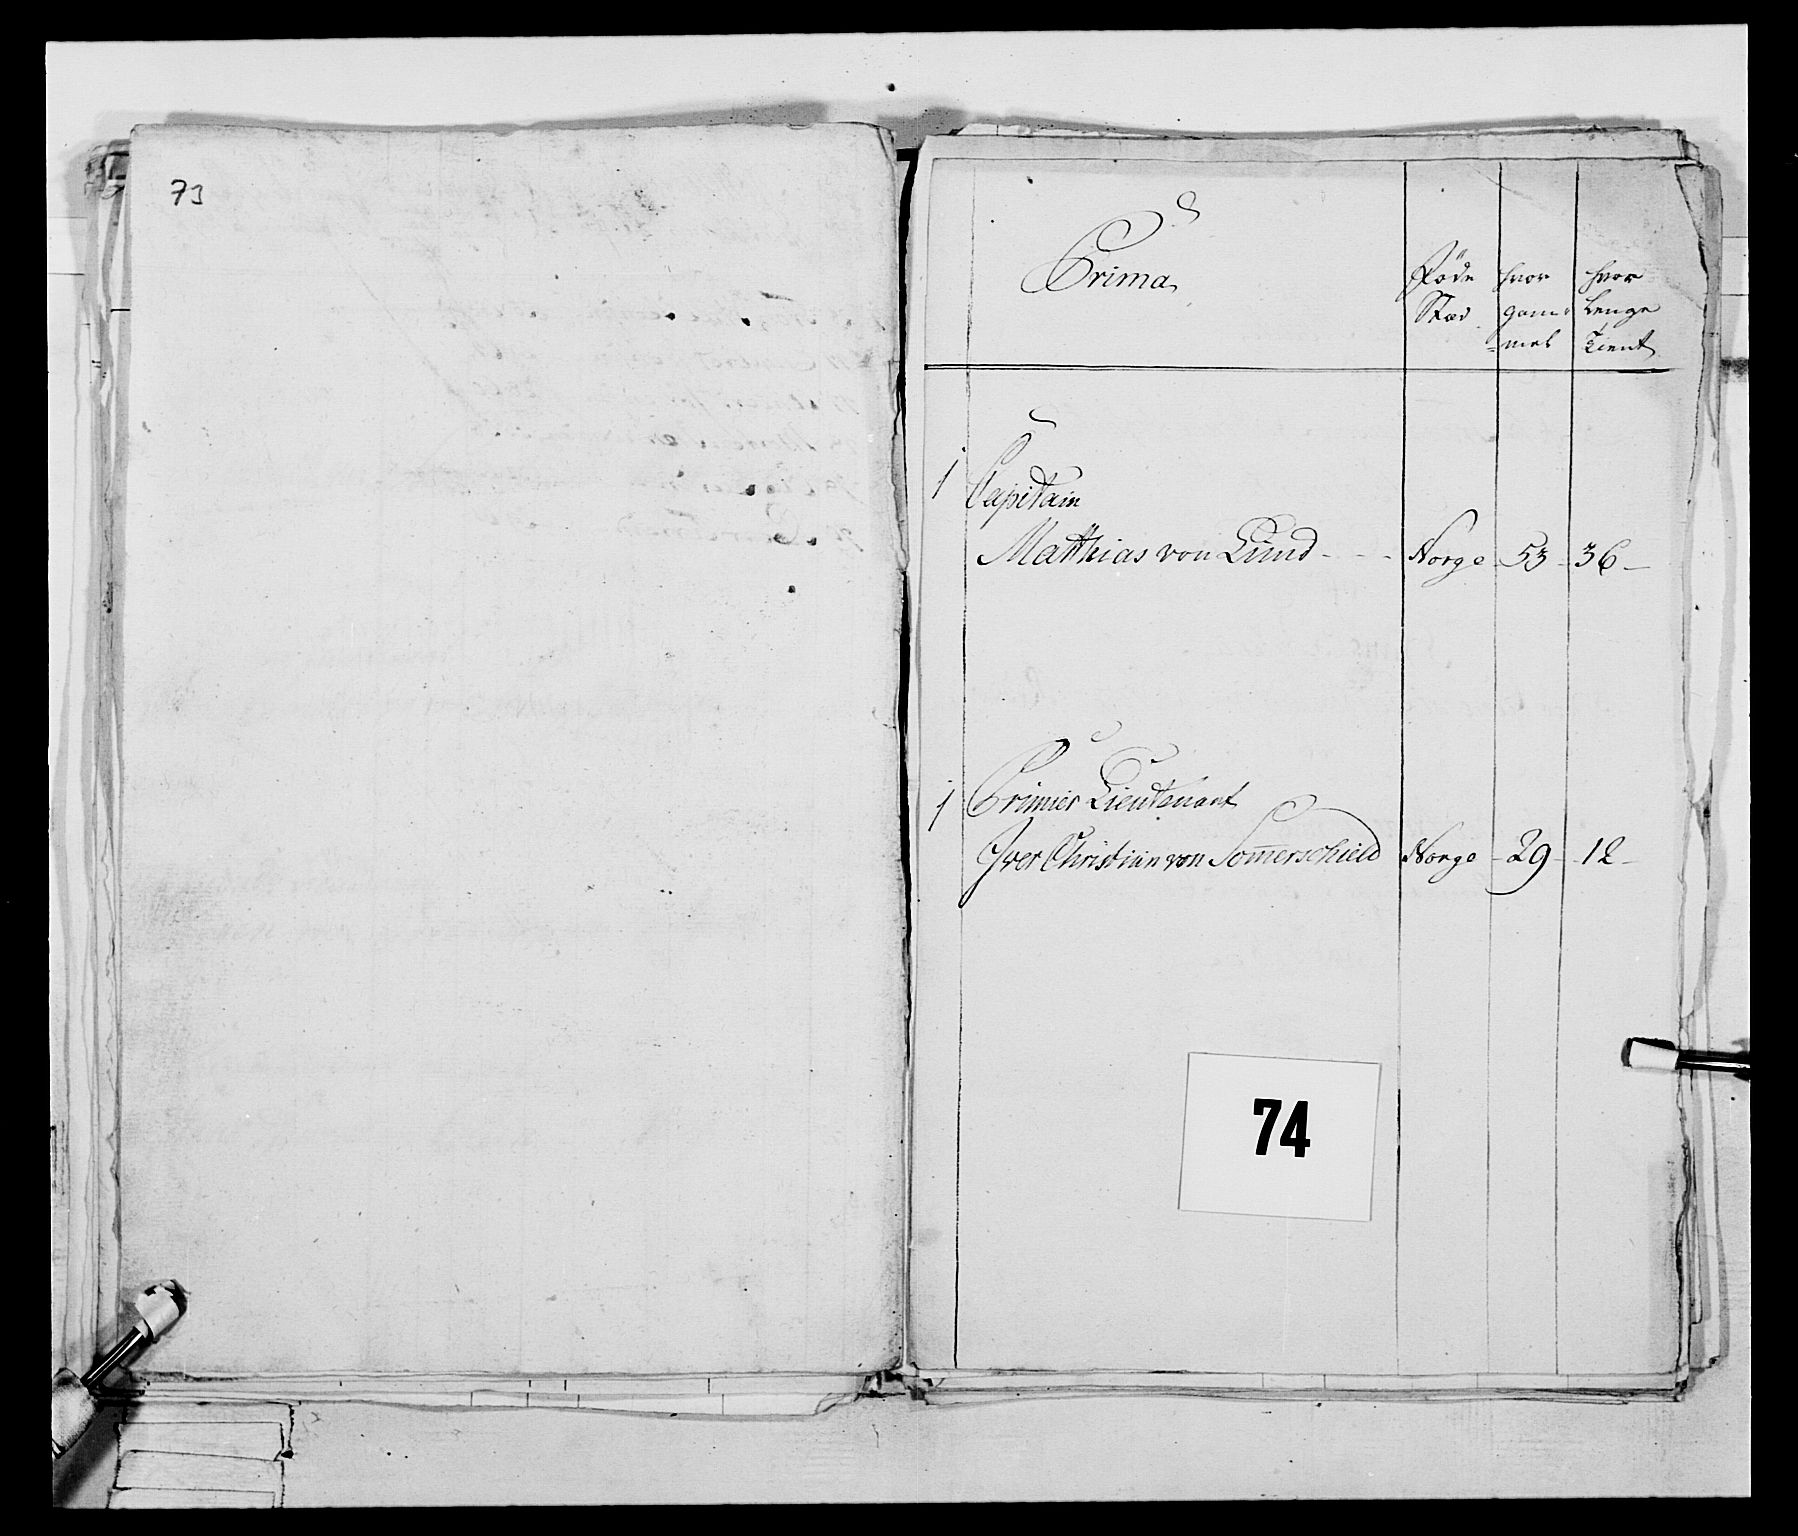 73
Prima
Föde Stæd
hvor gam= =mel
hvor Lenge Tient
1 Capitain
Matthias von Lund - - - Norge - 53 - 36 -
1 Primier Lieutenant
Iver Christian von Somerschield Norge - 29 - 12 -
74